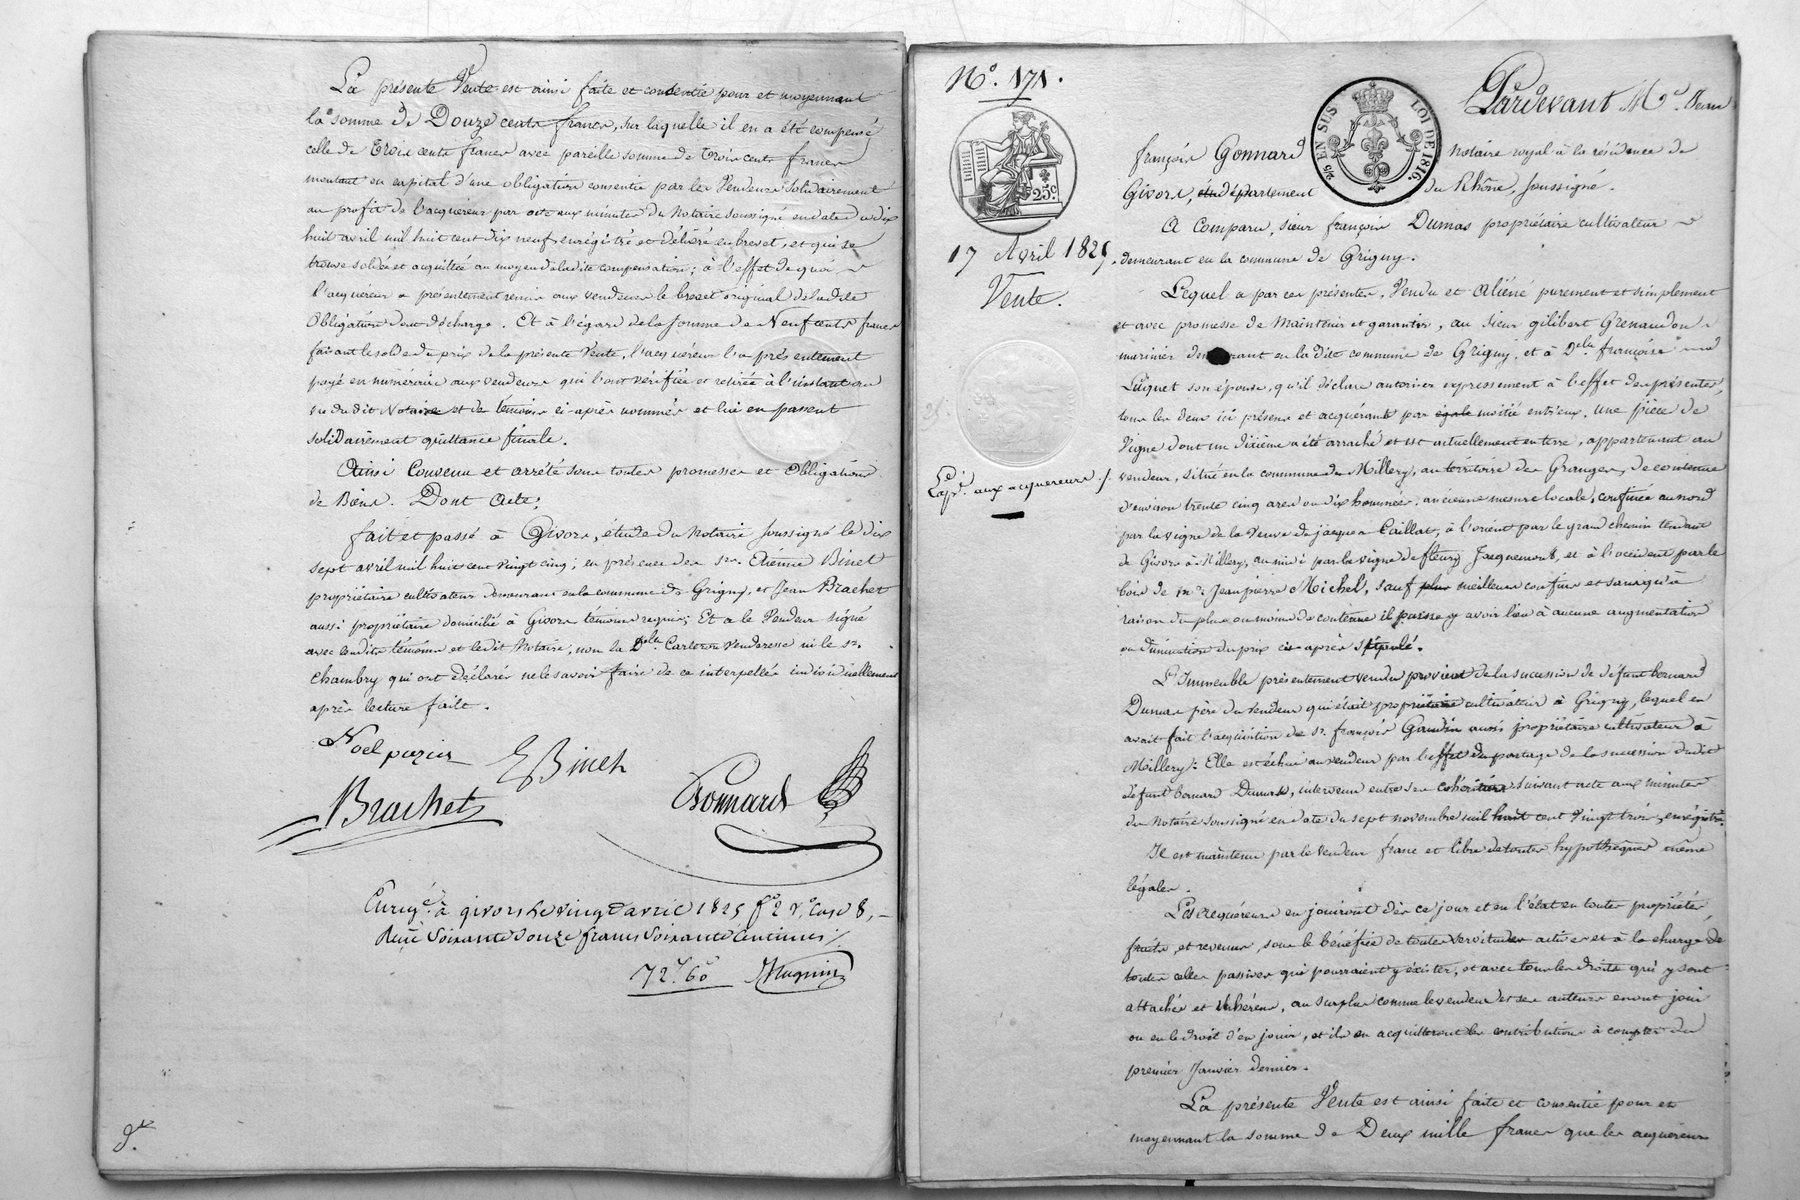 La présente Vente est ainsi faite et consentie pour et moyennant
la somme de Douze cents francs, sur laquelle il en a été compensé
celle de trois cents francs avec pareille somme de trois cents francs
montant en capital d'une obligation consentie par les Vendeurs solidairement
au profit de l'acquéreur par acte aux minutes du Notaire soussigné en date du dix
huit avril mil huit cent dix neuf, enrégistré et délivré en brevet, et qui se
trouve soldée et acquittée au moyen de ladite compensation; à l'effet de quoi
l'acquéreur a présentement remis aux vendeurs le brevet original de ladite
Obligation dont décharge. Et à l'égard de la somme de Neuf cents francs
faisant le solde du prix de la présente Vente, l'acquéreur l'a présentement
payé en numéraire aux vendeurs qui l'ont vérifiée et retirée à l'instant au
vu dudit Notaire et des témoins ci-après nommés et lui en passent
solidairement quittance finale.
Ainsi Convenu et arrêté sous toutes promesses et Obligations
de Biens. Dont Acte;
fait et passé à Givors, étude du Notaire soussigné le dix
sept avril mil huit cent vingt cinq; en présence des srs. Etienne Binet
propriétaire cultivateur demeurant en la commune de Grigny, et Jean Brachet
aussi propriétaire domicilié à Givors témoins requis; Et a le Vendeur signé
avec lesdits témoins et ledit Notaire, non la Delle. Carteron Venderesse ni le sr.
Chambry qui ont déclaré ne le savoir faire de ce interpellés individuellement
après lecture faite.
Noel pazier EBinet
Brachet Gonnard
Enregé. à givors le vingt avril 1825 fo 2 vo. Case 8,
Reçu Soixante douze francs Soixante Centimes
72f 60 Magnin
No. 171.
25 EN SUS LOI DE 1816.
25c.
17 Avril 1825.
Vente.
Expé. aux acquereurs
Pardevant Me. Jean
françois Gonnard notaire royal à la résidence de
Givors, département du Rhône, soussigné.
A Comparu, sieur françois Dumas propriétaire cultivateur
demeurant en la commune de Grigny.
Lequel a par ces présentes, Vendu et Aliéné purement et simplement
et avec promesse de Maintenir et garantir, au sieur gilibert Grenaudon
marinier demeurant en la dite commune de Grigny, et à Delle. françoise
Luquet son épouse, qu'il déclare autoriser expressement à l'effet des présentes,
tous les deux ici présens et acquérants par egale moitié entr'eux, une pièce de
Vigne dont un dixième a été arraché et est actuellement en terre, appartenant au
vendeur, située en la commune de Millery, au territoire des Granges, de contenue
d'environ trente cinq ares ou dix hommées ancienne mesure locale, confinée au nord
par la vigne de la Veuve de jacques Caillat, à l'orient par le grand chemin tendant
de Givors à Millery, au midi par la vigne de fleury Jacquemont, et à l'occident par le
bois de mr. Jean pierre Michel, sauf plus meilleurs confins et sans qu'à
raison du plus ou moins de contenue il puisse y avoir lieu à aucune augmentation
ou diminution du prix ci après stipulé.
L'Immeuble présentement vendu provient de la succession de défunt bernard
Dumas père du vendeur qui était propriétaire cultivateur à Grigny, lequel en
avait fait l'acquisition de sr. françois Gaudin aussi propriétaire cultivateur à
Millery: Elle est échue au vendeur par l'effet du partage de la succession dudit
défunt bernard Dumas, intervenu entre ses cohéritiers suivant acte aux minutes
du Notaire soussigné en date du sept novembre mil huit cent vingt trois, enrégistré.
Il est maintenu par le vendeur franc et libre de toutes hypothèques même
légales.
Les Acquéreurs en jouiront dès ce jour et en l'état en toute propriété,
fruits, et revenus, sous le bénéfice de toutes servitudes actives et à la charge de
toutes celles passives qui pourraient y éxister, et avec tous les droits qui y sont
attachés et inhérens, au surplus comme le vendeur et ses auteurs en ont joui
ou eu le droit d'en jouir, et ils en acquitteront les contributions à compter du
premier Janvier dernier.
La présente Vente est ainsi faite et consentie pour et
moyennant la somme de Deux mille francs que les acquéreurs